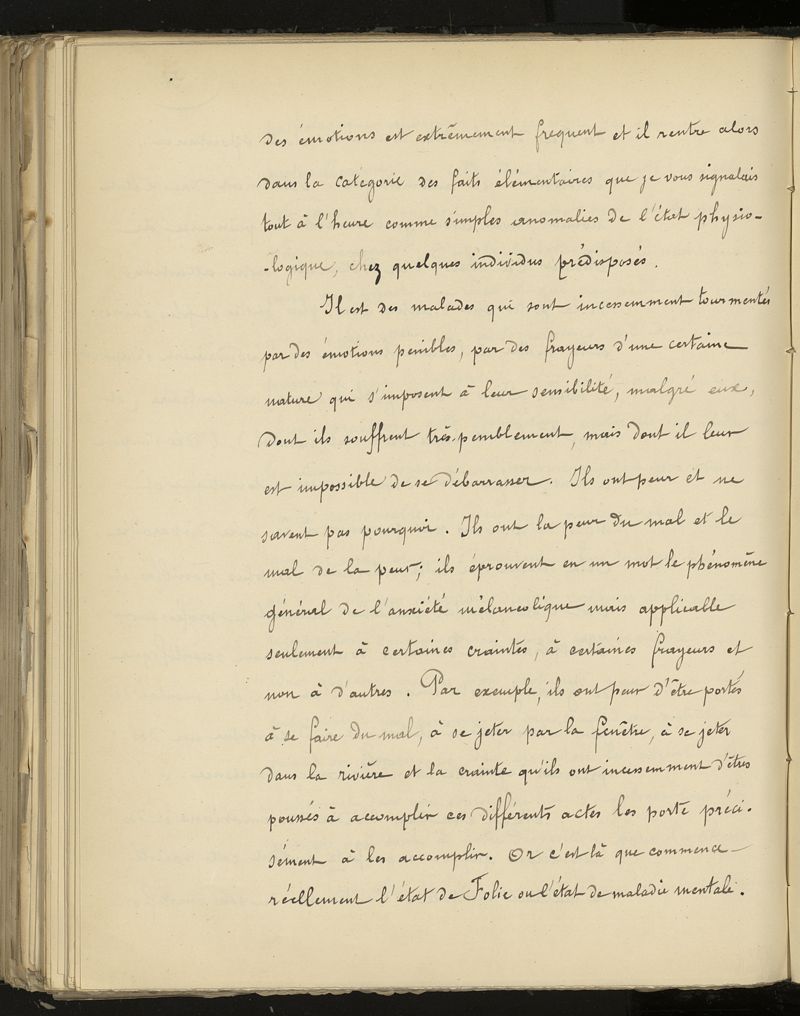 des émotions est extrêmement frequent et il rentre alors
dans la catégorie des faits élémentaires que je vous signalais
tout à l'heure comme simples anomalies de l'état physio-
-logique, chez quelques individus prédisposés.
Il est des malades qui sont incessemment tourmentés
par des émotions penibles, par des frayeurs d'une certaine
nature qui s'imposent à leur sensibilité, malgré eux,
dont ils souffrent très peniblement, mais dont il leur
est impossible de se débarrasser. Ils ont peur et ne
savent pas pourquoi. Ils ont la peur du mal et le
mal de la peur; ils éprouvent en un mot le phénomène
général de l'anxiété mélancolique mais applicable
seulement à certaines craintes, à certaines frayeurs et
non à d'autres. Par exemple, ils ont peur d'être portés
à se faire du mal, à se jeter par la fenêtre, à se jeter
dans la rivière et la crainte qu'ils ont incessemment d'êtres
poussés à accomplir ces différents actes les porte préci-
sément à les accomplir. Or c'est là que commence
réellement l'état de Folie ou l'état de maladie mentale.